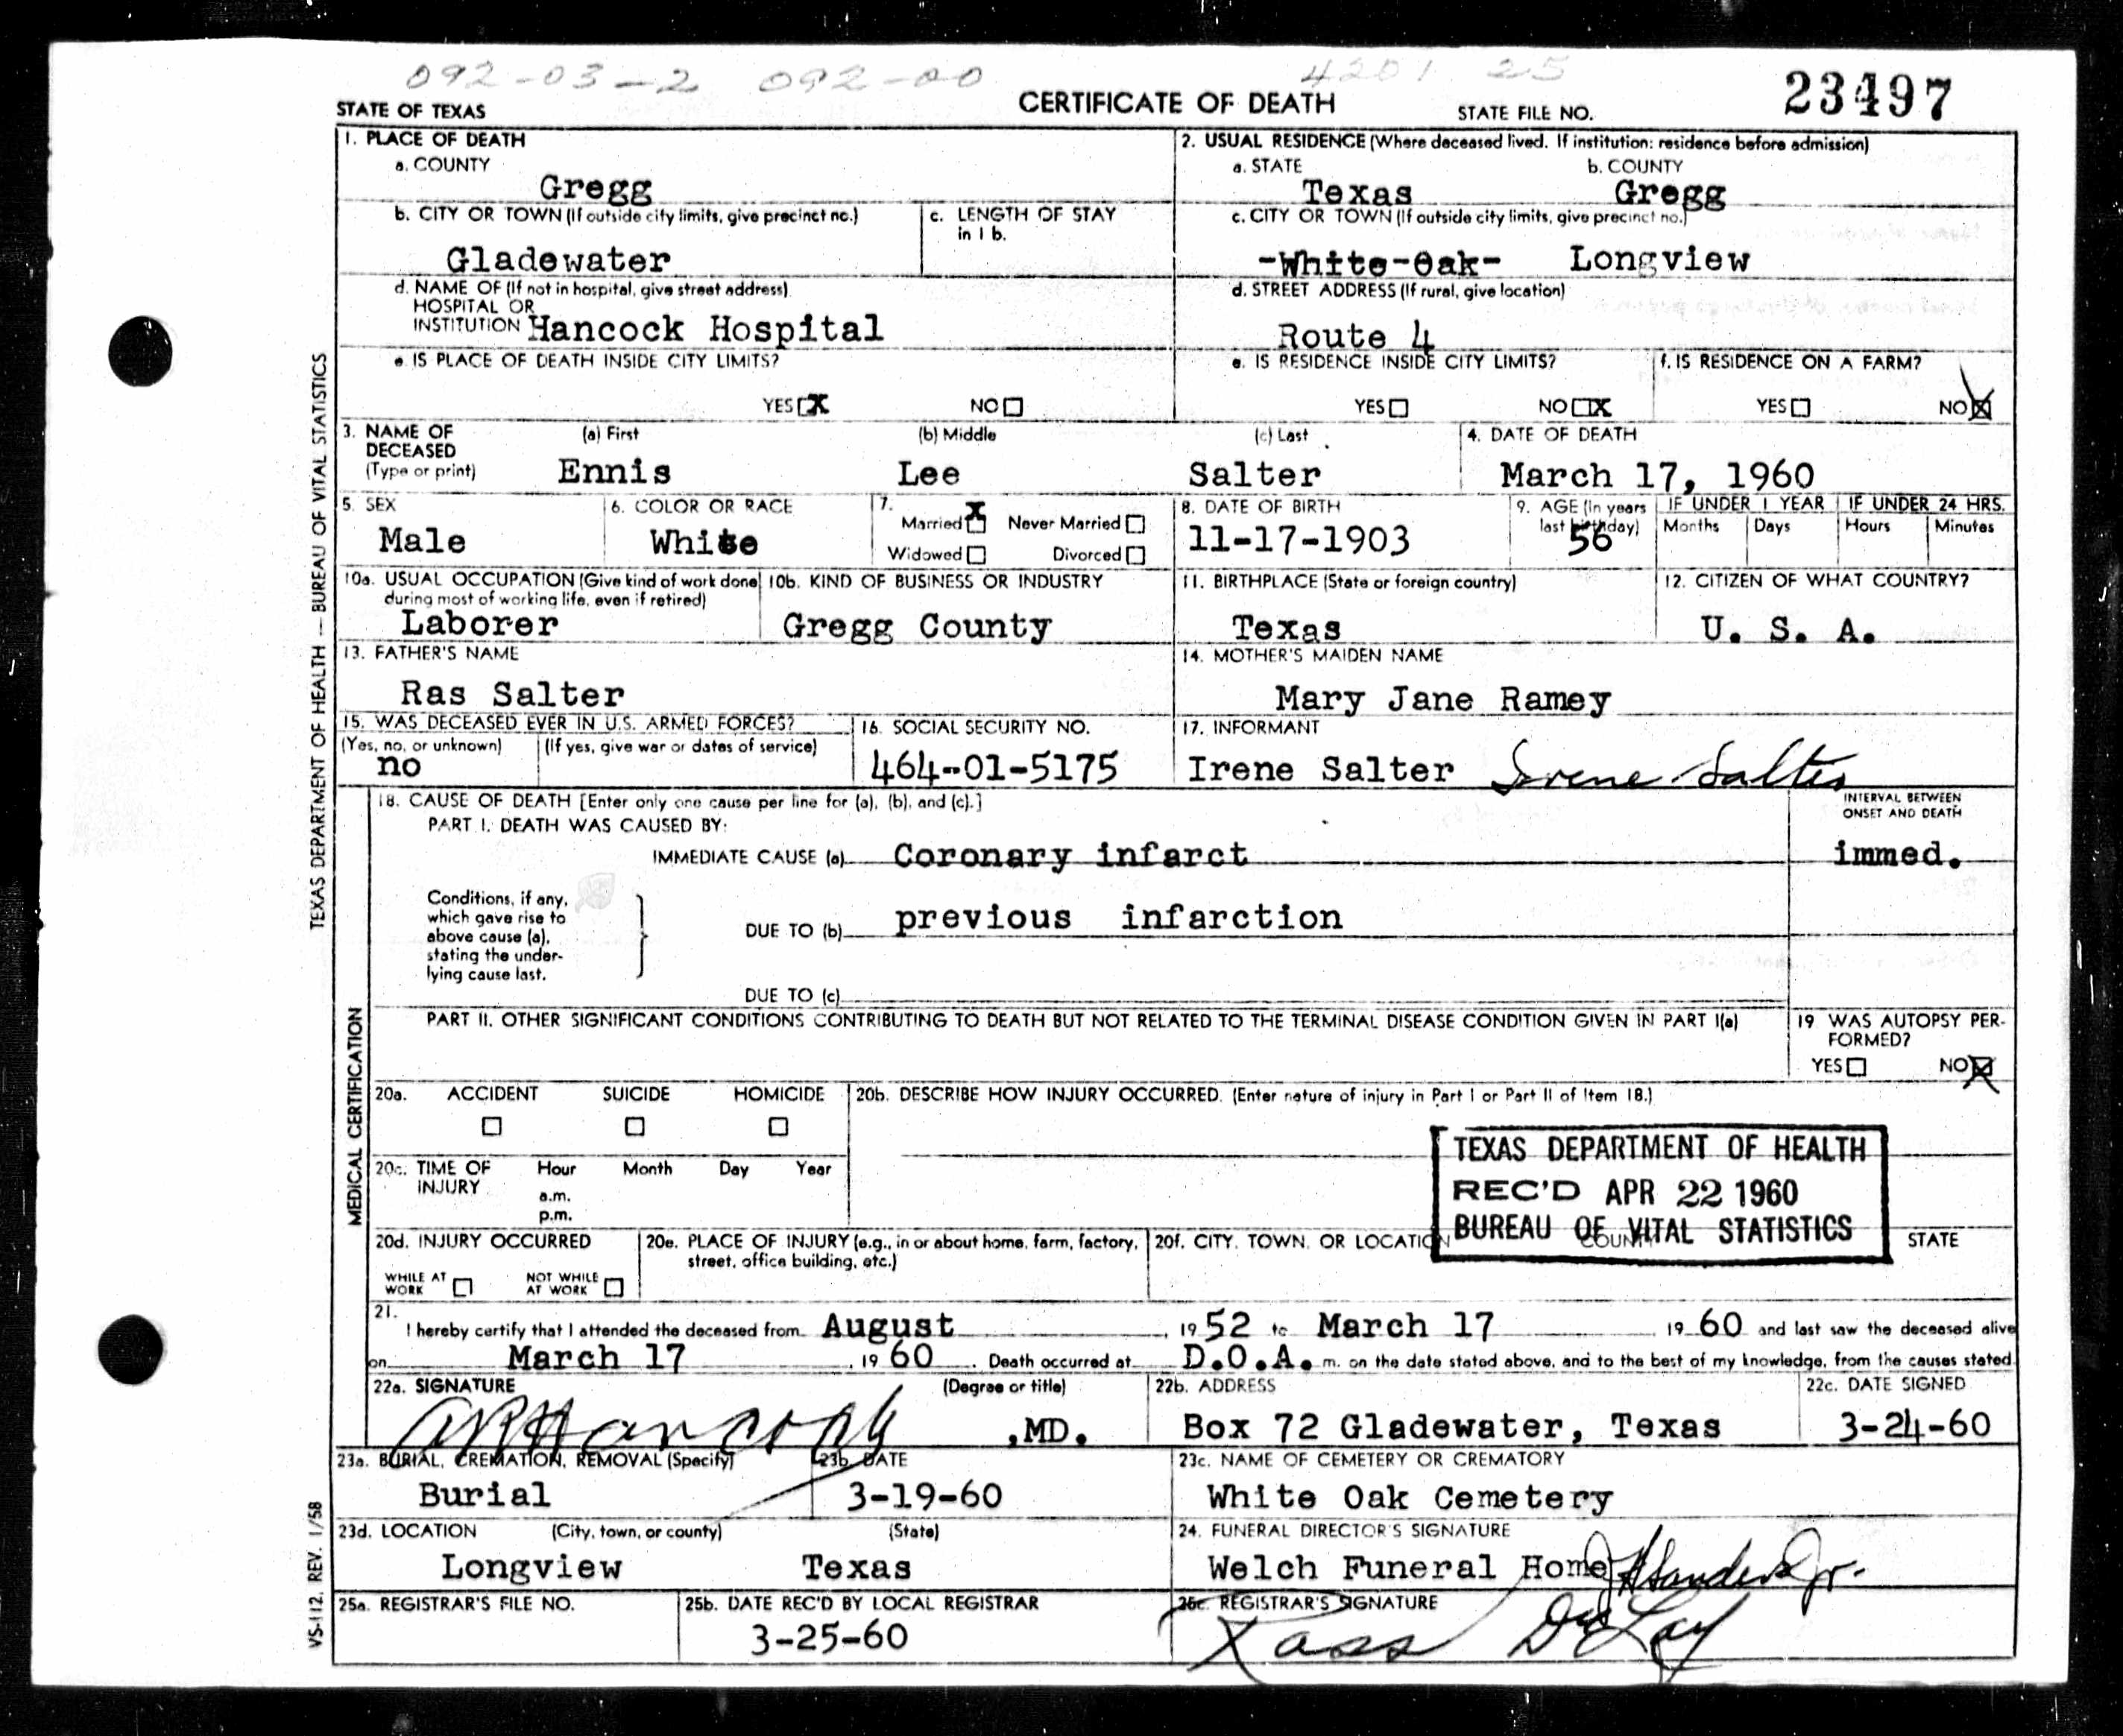 092-03-2 092-00 4201 25
STATE OF TEXAS CERTIFICATE OF DEATH STATE FILE NO. 23497
1. PLACE OF DEATH
a. COUNTY
Gregg
2. USUAL RESIDENCE (Where deceased lived. If institution: residence before admission)
a. STATE b. COUNTY
Texas Gregg
b. CITY OR TOWN (If outside city limits, give precinct no.)
Gladewater
c. LENGTH OF STAY
in 1 b.
c. CITY OR TOWN (If outside city limits, give precinct no.)
-White-Oak- Longview
d. NAME OF (If not in hospital, give street address)
HOSPITAL OR
INSTITUTION Hancock Hospital
d. STREET ADDRESS (If rural, give location)
Route 4
e. IS PLACE OF DEATH INSIDE CITY LIMITS?
YES X NO
e. IS RESIDENCE INSIDE CITY LIMITS?
YES NO X
f. IS RESIDENCE ON A FARM?
YES NO X
3. NAME OF
DECEASED
(Type or print)
(a) First (b) Middle (c) Last
Ennis Lee Salter
4. DATE OF DEATH
March 17, 1960
5. SEX
Male
6. COLOR OR RACE
White
7.
Married X Never Married
Widowed Divorced
8. DATE OF BIRTH
11-17-1903
9. AGE (In years
last birthday)
56
IF UNDER 1 YEAR
Months Days
IF UNDER 24 HRS.
Hours Minutes
10a. USUAL OCCUPATION (Give kind of work done
during most of working life, even if retired)
Laborer
10b. KIND OF BUSINESS OR INDUSTRY
Gregg County
11. BIRTHPLACE (State or foreign country)
Texas
12. CITIZEN OF WHAT COUNTRY?
U. S. A.
13. FATHER'S NAME
Ras Salter
14. MOTHER'S MAIDEN NAME
Mary Jane Ramey
15. WAS DECEASED EVER IN U.S. ARMED FORCES?
(Yes, no, or unknown) (If yes, give war or dates of service)
no
16. SOCIAL SECURITY NO.
464-01-5175
17. INFORMANT
Irene Salter Irene Salter
18. CAUSE OF DEATH [Enter only one cause per line for (a), (b), and (c).]
PART I. DEATH WAS CAUSED BY:
INTERVAL BETWEEN
ONSET AND DEATH
IMMEDIATE CAUSE (a) Coronary infarct immed.
Conditions, if any,
which gave rise to
above cause (a),
stating the under-
lying cause last.
DUE TO (b) previous infarction
DUE TO (c)
PART II. OTHER SIGNIFICANT CONDITIONS CONTRIBUTING TO DEATH BUT NOT RELATED TO THE TERMINAL DISEASE CONDITION GIVEN IN PART I(a)
19 WAS AUTOPSY PER-
FORMED?
YES NO X
20a. ACCIDENT SUICIDE HOMICIDE
20b. DESCRIBE HOW INJURY OCCURRED. (Enter nature of injury in Part I or Part II of Item 18.)
20c. TIME OF
INJURY
Hour Month Day Year
a.m.
p.m.
TEXAS DEPARTMENT OF HEALTH
REC'D APR 22 1960
BUREAU OF VITAL STATISTICS
20d. INJURY OCCURRED
WHILE AT
WORK
NOT WHILE
AT WORK
20e. PLACE OF INJURY (e.g., in or about home, farm, factory,
street, office building, etc.)
20f. CITY, TOWN, OR LOCATION COUNTY STATE
21.
I hereby certify that I attended the deceased from August, 1952 to March 17 1960 and last saw the deceased alive
on March 17, 1960. Death occurred at D.O.A. m. on the date stated above, and to the best of my knowledge, from the causes stated.
22a. SIGNATURE (Degree or title)
Hancock ,MD.
22b. ADDRESS
Box 72 Gladewater, Texas
22c. DATE SIGNED
3-24-60
23a. BURIAL, CREMATION, REMOVAL (Specify)
Burial
23b. DATE
3-19-60
23c. NAME OF CEMETERY OR CREMATORY
White Oak Cemetery
23d. LOCATION (City, town, or county) (State)
Longview Texas
24. FUNERAL DIRECTOR'S SIGNATURE
Welch Funeral Home Sanders Jr.
25a. REGISTRAR'S FILE NO.
25b. DATE REC'D BY LOCAL REGISTRAR
3-25-60
25c. REGISTRAR'S SIGNATURE
Rass DeLay
TEXAS DEPARTMENT OF HEALTH — BUREAU OF VITAL STATISTICS
MEDICAL CERTIFICATION
VS-112. REV. 1/58